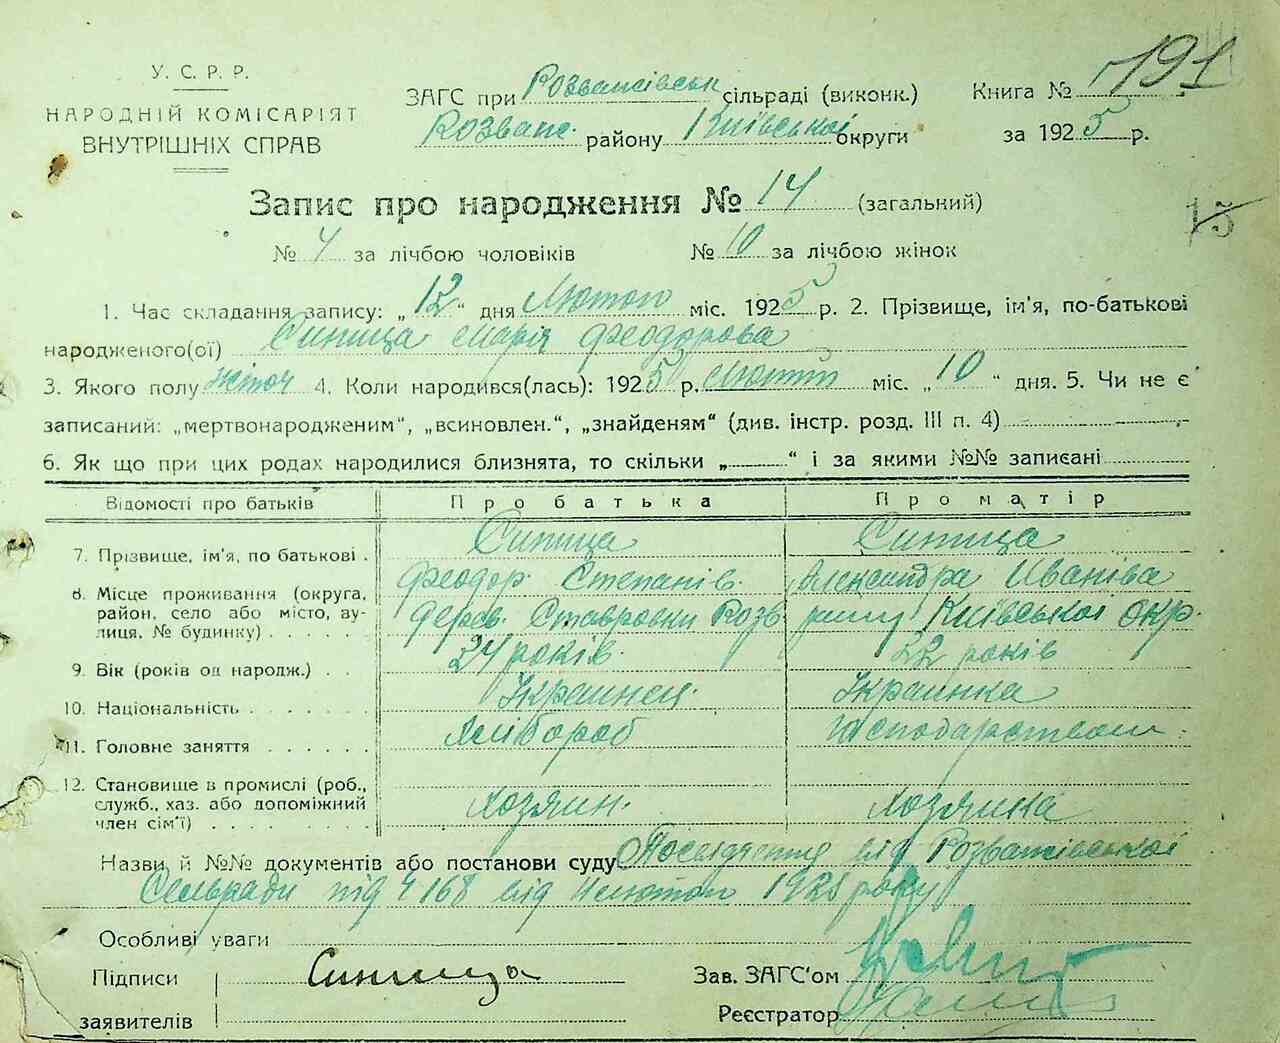 У. С. Р. Р.
НАРОДНІЙ КОМІСАРІЯТ
ВНУТРІШНІХ СПРАВ
ЗАГС при Розважівськ сільраді (виконк.)
Розваж. району Київської округи
Книга № 191
за 1925 р.
Запис про народження № 14 (загальний)
15
№ 4 за лічбою чоловіків № 10 за лічбою жінок
1. Час складання запису: „12“ дня Лютого міс. 1925 р. 2. Прізвище, ім'я, по-батькові
народженого(ої) Синица Марія Феодорова
3. Якого полу жіноч 4. Коли народився(лась): 1925 р. Лютий міс. „10“ дня. 5. Чи не є
записаний: „мертвонародженим“, „всиновлен.“, „знайденям“ (див. інстр. розд. III п. 4)
6. Як що при цих родах народилися близнята, то скільки „ “ і за якими №№ записані
Відомості про батьків Про батька Про матір
7. Прізвище, ім'я, по батькові . Синица Синица
Феодор. Степанів. Александра Иваніва
8. Місце проживання (округа, район, село або місто, вулиця, № будинку) . . . . . дерев. Ставровки Розв району Київської окр.
9. Вік (років од народж.) . . 24 років. 22 років
10. Національність . . . . . . Украинец. Украинка
11. Головне заняття . . . . . . Хлібороб господарством.
12. Становище в промислі (роб., служб., хаз. або допоміжний член сім'ї) . . . . . . . Хозяин. Хозяйка
Назви й №№ документів або постанови суду Посвідчення від Розважівської
Сельради під № 168 від лютого 1925 року
Особливі уваги
Підписи Синица Зав. ЗАГС'ом
заявителів Реєстратор